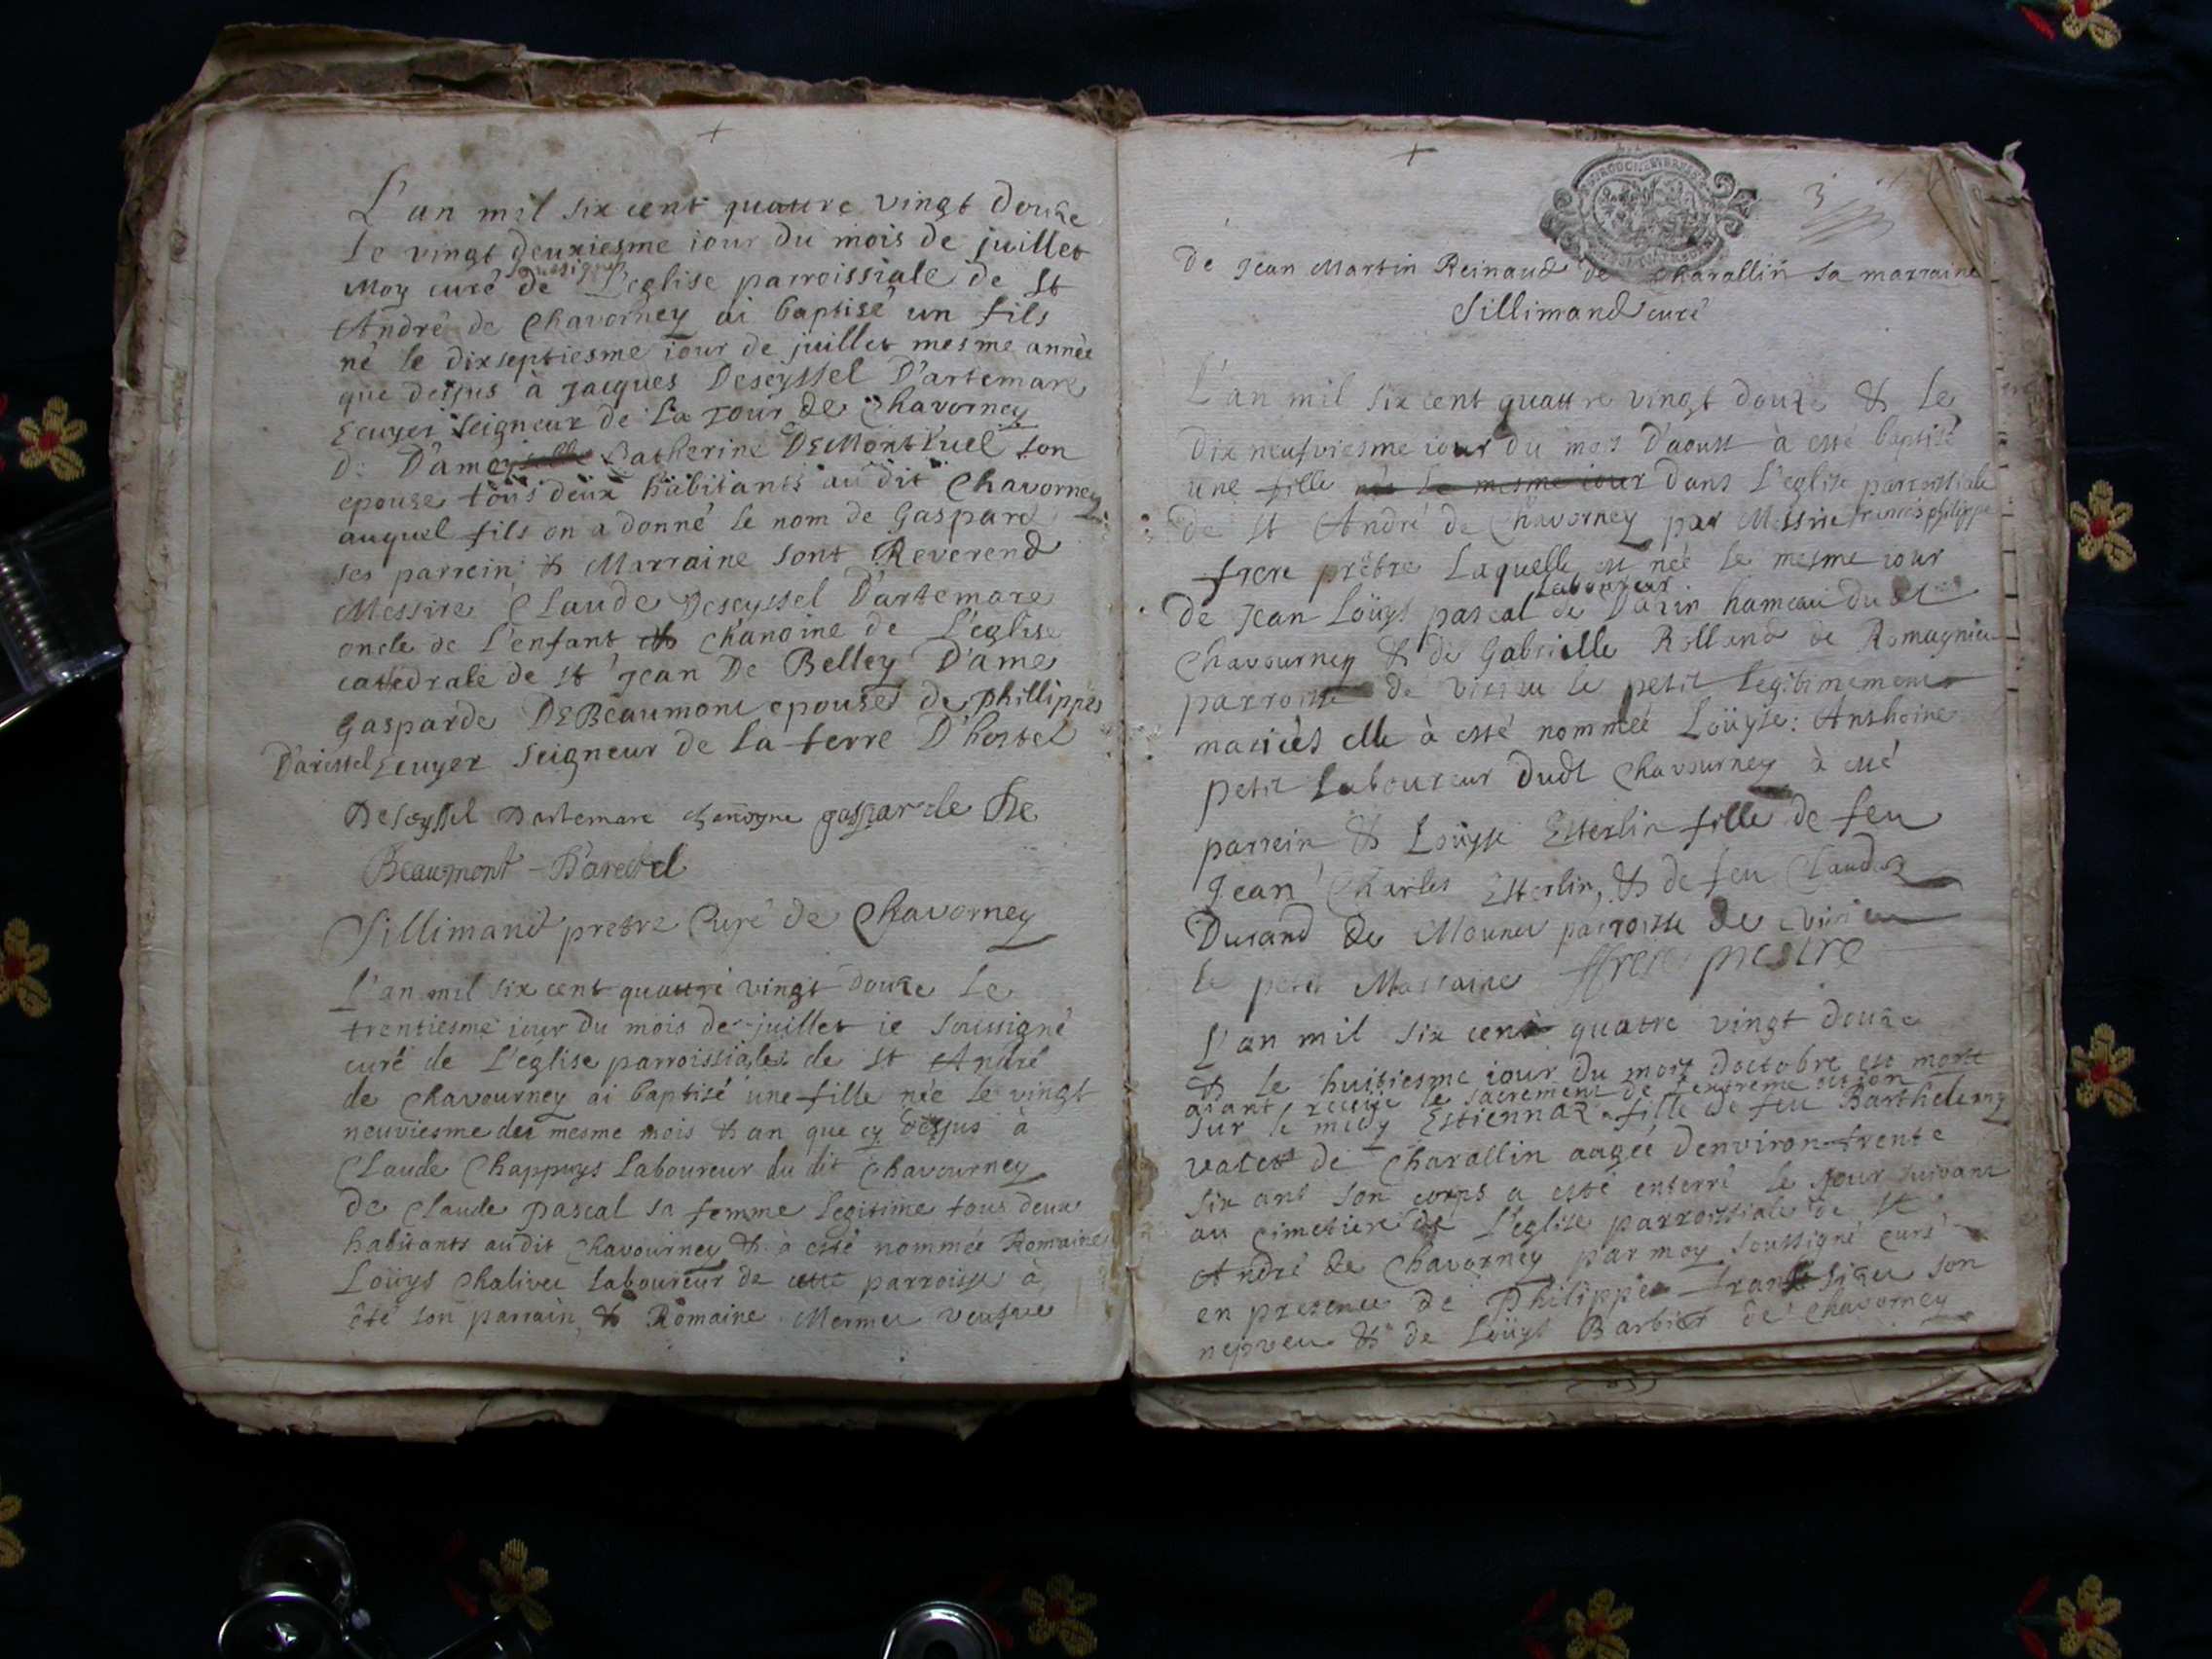 L'an mil six cent quattre vingt douze
le vingt deuxiesme iour du mois de juillet
Moy curé soussigné de L'eglise parroissiale de St
André de Chavorney ai baptisé un fils
né le dixseptiesme iour de juillet mesme année
que dessus à Jacques Deseyssel D'artemare
Ecuyer seigneur de La Tour de Chavorney
D: Dame Catherine DEMontluel son
epouse tous deux habitants au dit Chavorney
auquel fils on a donné le nom de Gaspard
ses parrein & Marraine sont Reverend
Messire Claude Deseyssel D'artemare
oncle de L'enfant & chanoine de L'eglise
catedrale de St Jean De Belley D'ame
Gasparde DEBeaumont epouse de phillippes
D'arestel Ecuyer Seigneur de la terre D'hostel
Deseyssel Dartemare chanoyne gasparde De
Beaumont D'arestel
Sillimand prebre Curé de Chavorney
L'an mil six cent quattre vingt douze Le
trentiesme iour du mois de juillet ie soussigné
curé de L'eglise parroissiale de St André
de Chavourney ai baptisé une fille née le vingt
neuviesme des mesme mois & an que cy dessus à
Claude Chappuys Laboureur du dit Chavourney
de Claude pascal sa femme legitime tous deux
habitants au dit Chavourney & à esté nommée Romaine
Loüys Chalivet laboureur de cette parroisse à
été son parrain & Romaine Mermet veufve
3
de Jean Martin Reinaud de Charallin sa marraine
Sillimand curé
L'an mil six cent quattre vingt douze & le
dix neufviesme iour du mois D'aoust à esté baptisé
une fille née le mesme iour dans L'eglise parroissiale
de St André de Chavorney par Messire francois philippe
frere prêbre Laquelle est née le mesme iour
de Jean Loüys pascal Laboureur de Dazin hameau dudt
Chavourney & de Gabrielle Rolland de Romagnieu
parroisse de Virieu le petit legitimement
mariés elle à esté nommée Loüyse: Anthoine
petit Laboureur dudt Chavourney à esté
parrein & Loüyse Esterlin fille de feu
Jean Charles Esterlin, & de feu Claude
Durand de Mounet parroisse de Virieu
le petit Marraine ffrere prestre
L'an mil six cent quatre vingt douze
& le huitiesme iour du mois doctobre est morte
aiant receüe le sacrement de l'extreme onction
sur le midy Estiennaz fille de feu Barthelemy
de Charallin aagée denviron trente
six ans son corps a esté enterré le jour suivant
au cimetiere de L'eglise parroissiale de St
André de Chavorney par moy soussigné curé
en presence de Philippe son
nepveu & de Loüys Barbier de Chavorney